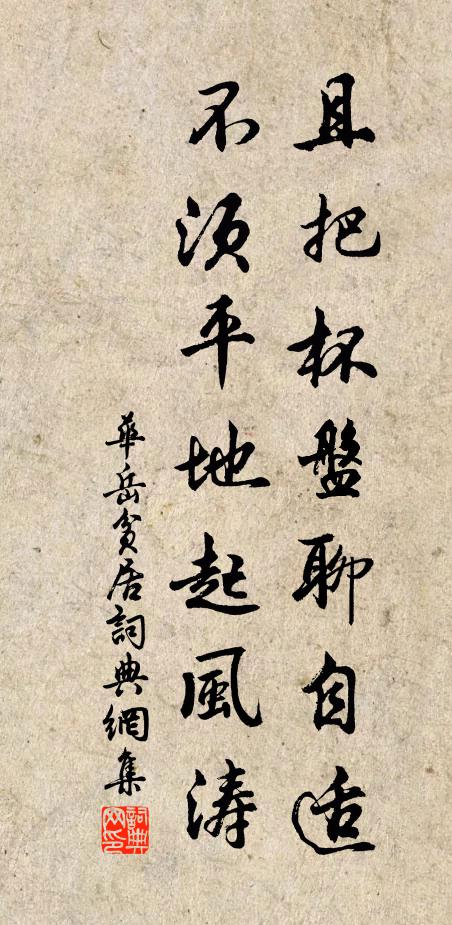 且把杯盤聊自适
不須平地起風涛
華岳貧居詞典網集
詞典网印